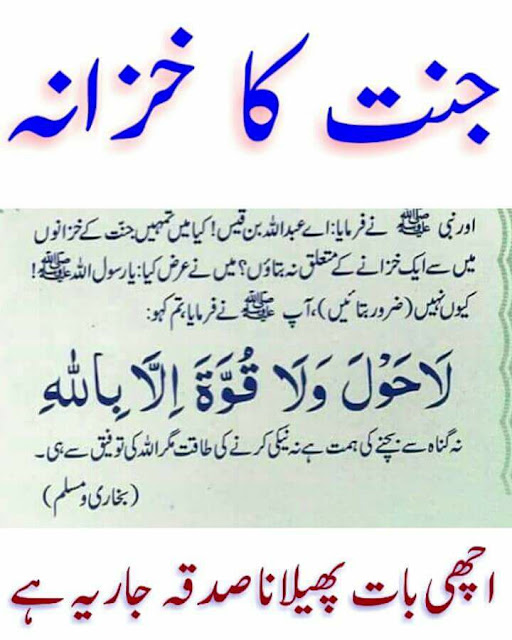 جنت کا خزانہ
اور نبی ﷺ نے فرمایا: اے عبداللہ بن قیس! کیا میں تمہیں جنّت کے خزانوں
میں سے ایک خزانے کے متعلق نہ بتاؤں؟ میں نے عرض کیا: یا رسول اللہ ﷺ!
کیوں نہیں (ضرور بتائیں)، آپ ﷺ نے فرمایا، تم کہو:
لَا حَوْلَ وَلَا قُوَّةَ اِلَّا بِاللّٰهِ
نہ گناہ سے بچنے کی ہمت ہے نہ نیکی کرنے کی طاقت مگر اللہ کی توفیق سے ہی۔
(بخاری و مسلم)
اچھی بات پھیلانا صدقہ جاریہ ہے